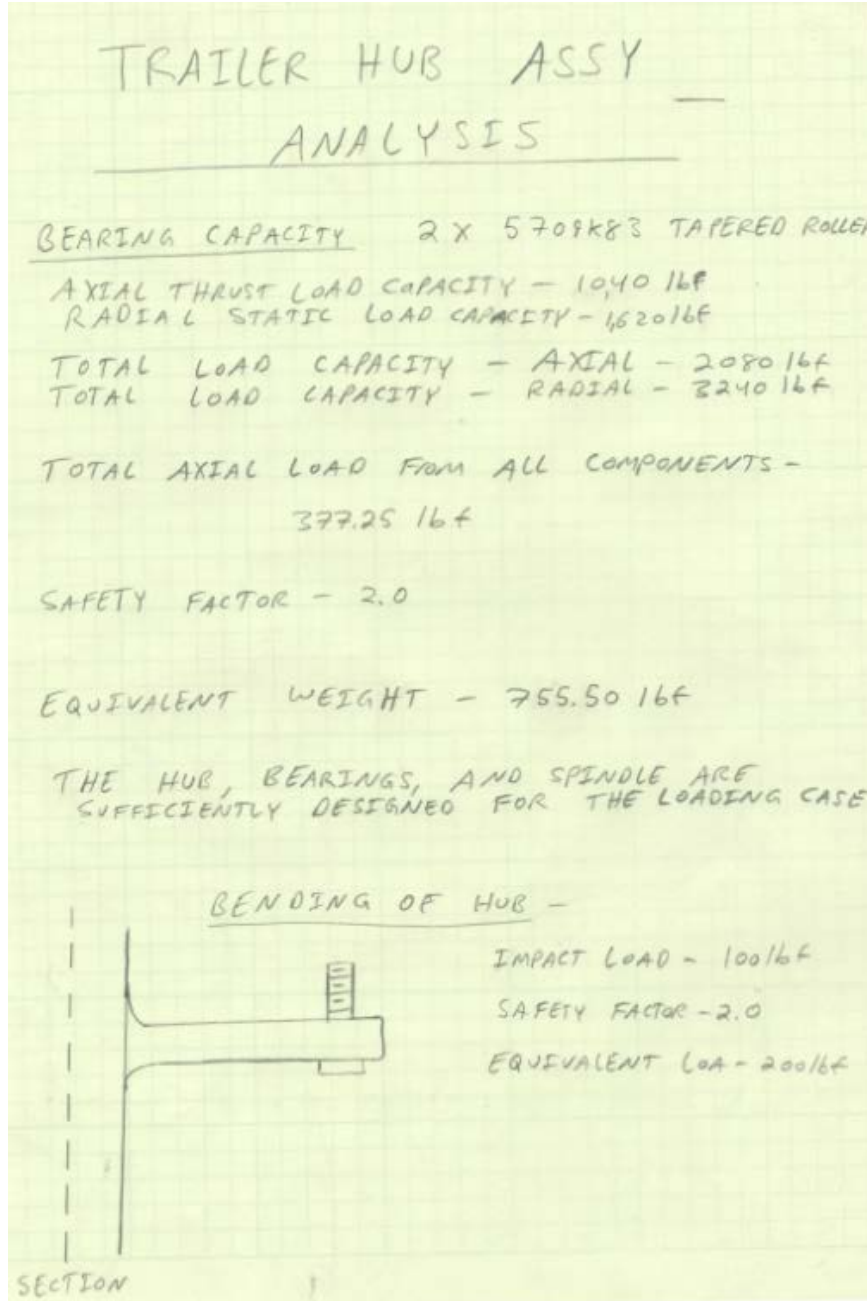 TRAILER HUB ASSY
ANALYSIS
BEARING CAPACITY 2 X 5709K83 TAPERED ROLLER
AXIAL THRUST LOAD CAPACITY - 10,40 lbf
RADIAL STATIC LOAD CAPACITY - 1,620 lbf
TOTAL LOAD CAPACITY - AXIAL - 2080 lbf
TOTAL LOAD CAPACITY - RADIAL - 3240 lbf
TOTAL AXIAL LOAD FROM ALL COMPONENTS -
377.25 lbf
SAFETY FACTOR - 2.0
EQUIVALENT WEIGHT - 755.50 lbf
THE HUB, BEARINGS, AND SPINDLE ARE
SUFFICIENTLY DESIGNED FOR THE LOADING CASE
BENDING OF HUB -
IMPACT LOAD - 100 lbf
SAFETY FACTOR - 2.0
EQUIVALENT LOA - 200 lbf
SECTION